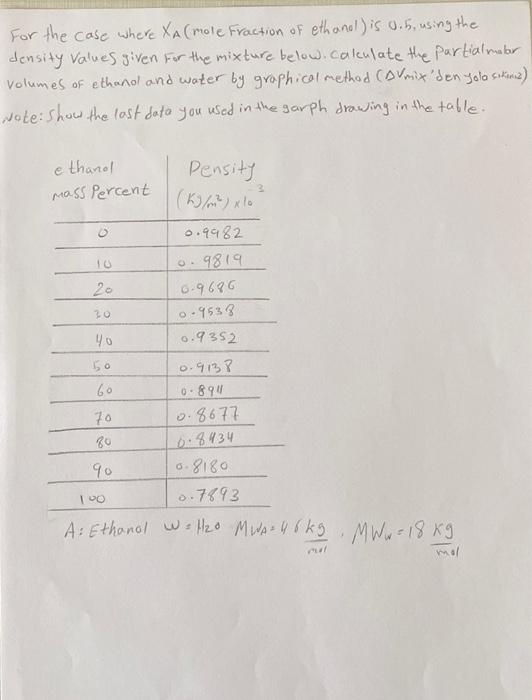 For the case where XA (mole Fraction of ethanol) is 0.5, using the
density values given For the mixture below. calculate the Partial molar
Volumes of ethanol and water by graphical method (ΔVmix'den yola
Note: show the last data you used in the garph drawing in the table.
ethanol Density
Mass Percent (Kg/m³) x10⁻³
0 0.9982
10 0.9819
20 0.9686
30 0.9538
40 0.9352
50 0.9138
60 0.8911
70 0.8677
80 0.8434
90 0.8180
100 0.7893
A: Ethanol W = H2O MWA = 46 kg/mol , MWw = 18 kg/mol